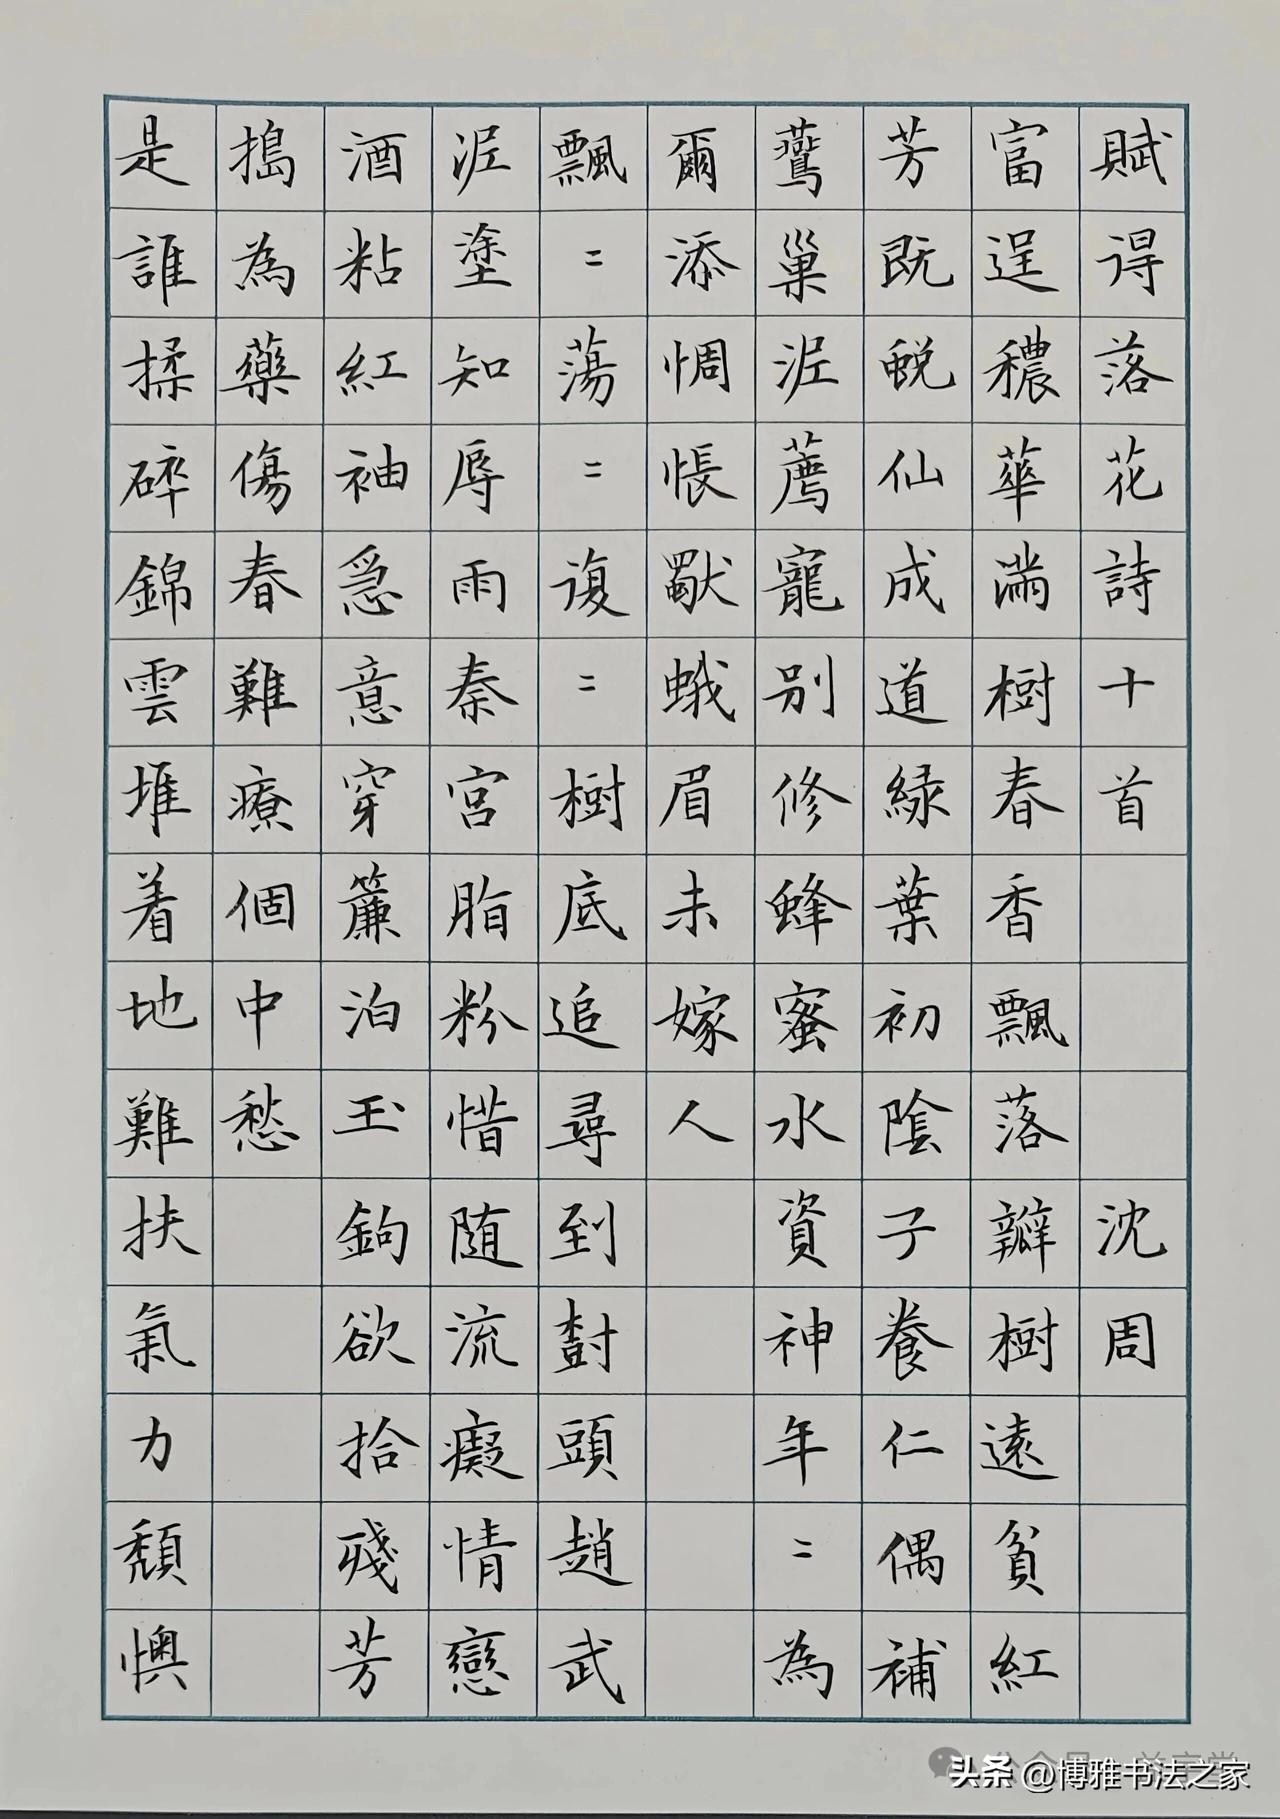 賦得落花詩十首 沈周
富逞穠華滿樹春香飄落瓣樹遠貧紅
芳既蛻仙成道綠葉初陰子養仁偶補
鷰巢泥薦寵別修蜂蜜水資神年=為
爾添惆悵獻蛾眉未嫁人
飄=蕩=復=樹底追尋到樹頭趙武
泥塗知辱雨秦宮脂粉惜随流癡情戀
酒粘紅袖急意穿簾泊玉鉤欲拾殘芳
搗為藥傷春難療個中愁
是誰揉碎錦雲堆着地難扶氣力頹懊
头条 @博雅书法之家